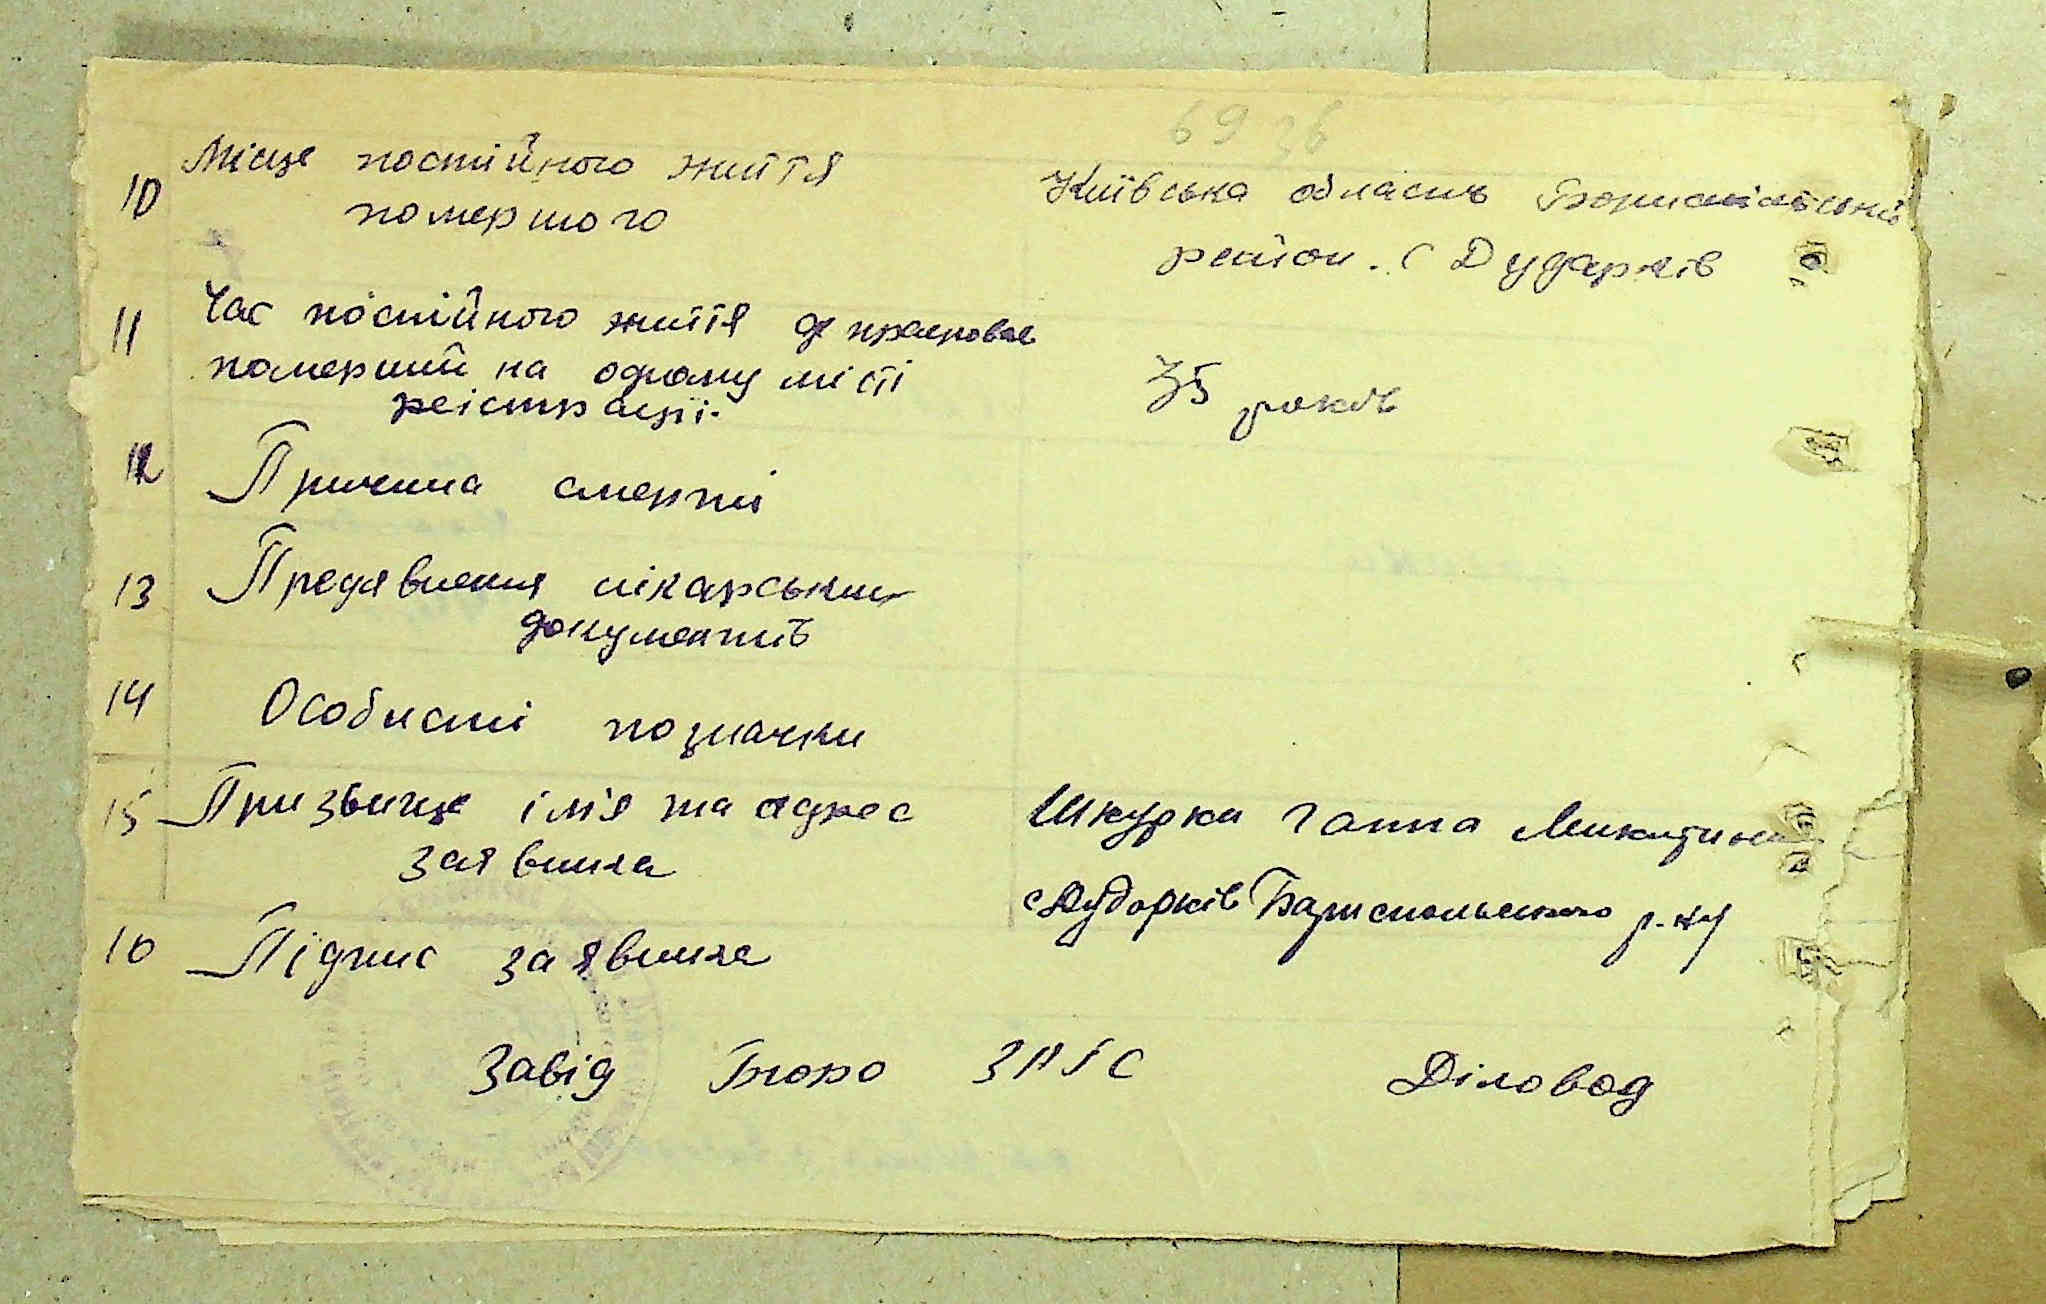 69 зв
10 Місце постійного життя
помершого
Київська область Бориспільський
район. с Дударків
11 Час постійного життя де працював
померший на одному місті
реістрації.
35 років
12 Причина смерті
13 Предявлення лікарських
документів
14 Особисті позначки
15 Призвище імя та адрес
заявника
Шкурка Ганна Микитична
с Дударків Бориспольского р-ну
16 Підпис заявника
Завід Бюро ЗАГС Діловод